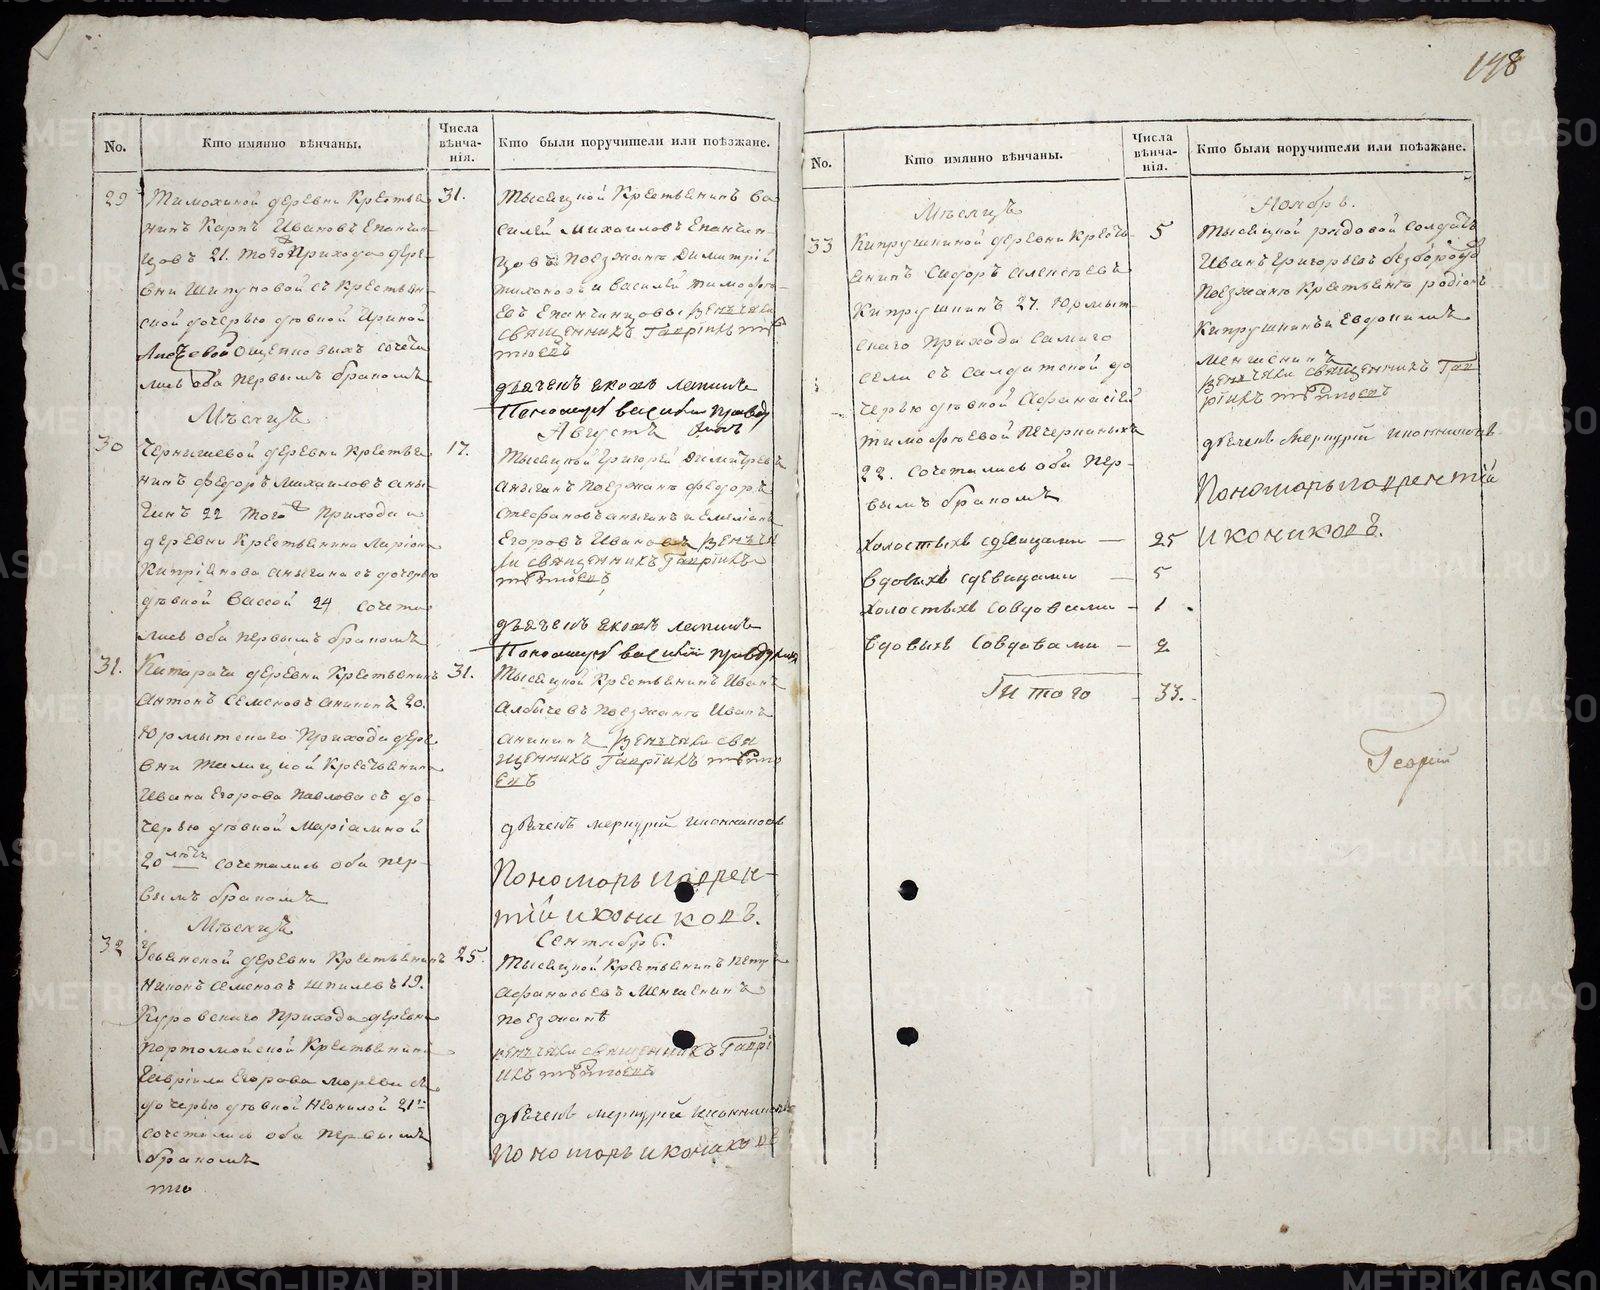 148
No.
Кто имянно вѣнчаны.
Числа вѣнча-нія.
Кто были поручители или поѣзжане.
29
Тимохиной деревни Крестья
нинъ Карпъ Ивановъ Епанчин-
цовъ 21. того Прихода дере-
вни Шипуновой съ Крестьян-
ской дочерью дѣвкой Ириной
сочета
лись оба первымъ бракомъ
31.
Тысяцкой Крестьянинъ Ва
силей Михаиловъ Епанчин-
цовъ поезжана Димитрій
Тихоновъ и Василей Тимофѣ-
евъ Епанчинцовы Вѣнчали
священникъ Гавріилъ
дьячекъ Яковъ Лапинъ
Пономарь Василій
Мѣсяцъ
Августъ
30
Чернышевой деревни Крестья
нинъ Федоръ Михаиловъ Аны-
гинъ 22 того Прихода и
деревни Крестьянина Ларіона
Кипріянова Аныгина съ дочерью
дѣвкой Вассой 24 сочета
лись оба первымъ бракомъ
17.
Тысяцкой Григорей Димитріевъ
Аныгинъ поезжана Федоръ
Стефановъ Аныгинъ и Емеліанъ
Егоровъ Ивановъ Вѣнча
ли священникъ Гавріилъ
дьячекъ Яковъ Лапинъ
Пономарь Василій
31.
деревни Крестьянинъ
Антонъ Семеновъ Ананинъ 20.
Юрмытскаго Прихода дере
вни Талицкой Крестьянина
Ивана Егорова Павлова съ до-
черью дѣвкой Маріамной
20 лѣтъ сочетались оба пер-
вымъ бракомъ
31.
Тысяцкой Крестьянинъ Иванъ
поезжана Иванъ
Ананинъ Вѣнчали свя
щенникъ Гавріилъ
дьячекъ Меркурій Иконниковъ
Пономарь Лаврен-
тій Икониковъ.
Мѣсяцъ
Сентябрь.
32
деревни Крестьянинъ
Никонъ Семеновъ Шпилевъ 19.
Куровскаго Прихода деревни
Портомойской Крестьянина
Гавріила Егорова съ
дочерью дѣвкой Неонилой 21
сочетались оба первымъ
бракомъ
25.
Тысяцкой Крестьянинъ Петръ
Афанасьевъ Меншенинъ
поезжана
Вѣнчали священникъ Гаврі
илъ
дьячекъ Меркурій Иконниковъ
Пономарь Икониковъ
No.
Кто имянно вѣнчаны.
Числа вѣнча-нія.
Кто были поручители или поѣзжане.
Мѣсяцъ
Ноябрь.
33
Кипрушкиной деревни Кресть-
янинъ Сидоръ Алексѣевъ
Кипрушкинъ 27. Юрмыт-
скаго Прихода самаго
села съ салдатской до
черью дѣвкой Афанасіей
Тимофѣевой Печеркиныхъ
22. сочетались оба пер-
вымъ бракомъ
5
Тысяцкой рядовой солдатъ
Иванъ Григорьевъ
поезжана Крестьяна Родіонъ
Кипрушкинъ и Евдокимъ
Меншенинъ
Вѣнчали священникъ Гав
ріилъ
дьячекъ Меркурій Иконниковъ
Пономарь Лаврентій
Икониковъ.
Холостыхъ съ девицами — 25
вдовыхъ с девицами — 5
холостыхъ со вдовами — 1.
вдовыхъ со вдовами — 2
Итого — 33.
Георгій
METRIKI.GASO-URAL.RU